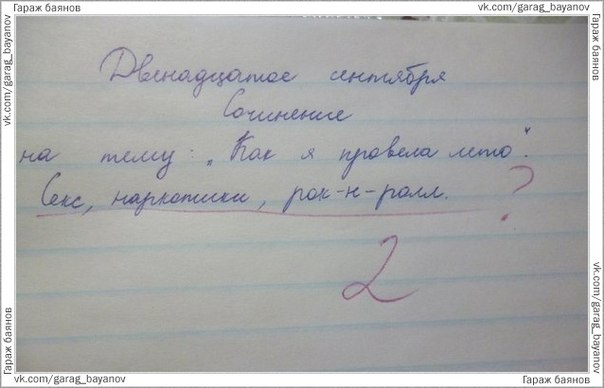 Гараж баянов
vk.com/garag_bayanov
vk.com/garag_bayanov
Гараж баянов
Двенадцатое сентября
Сочинение
на тему: „Как я провела лето“.
Секс, наркотики, рок-н-ролл. ?
2
Гараж баянов
vk.com/garag_bayanov
vk.com/garag_bayanov
Гараж баянов